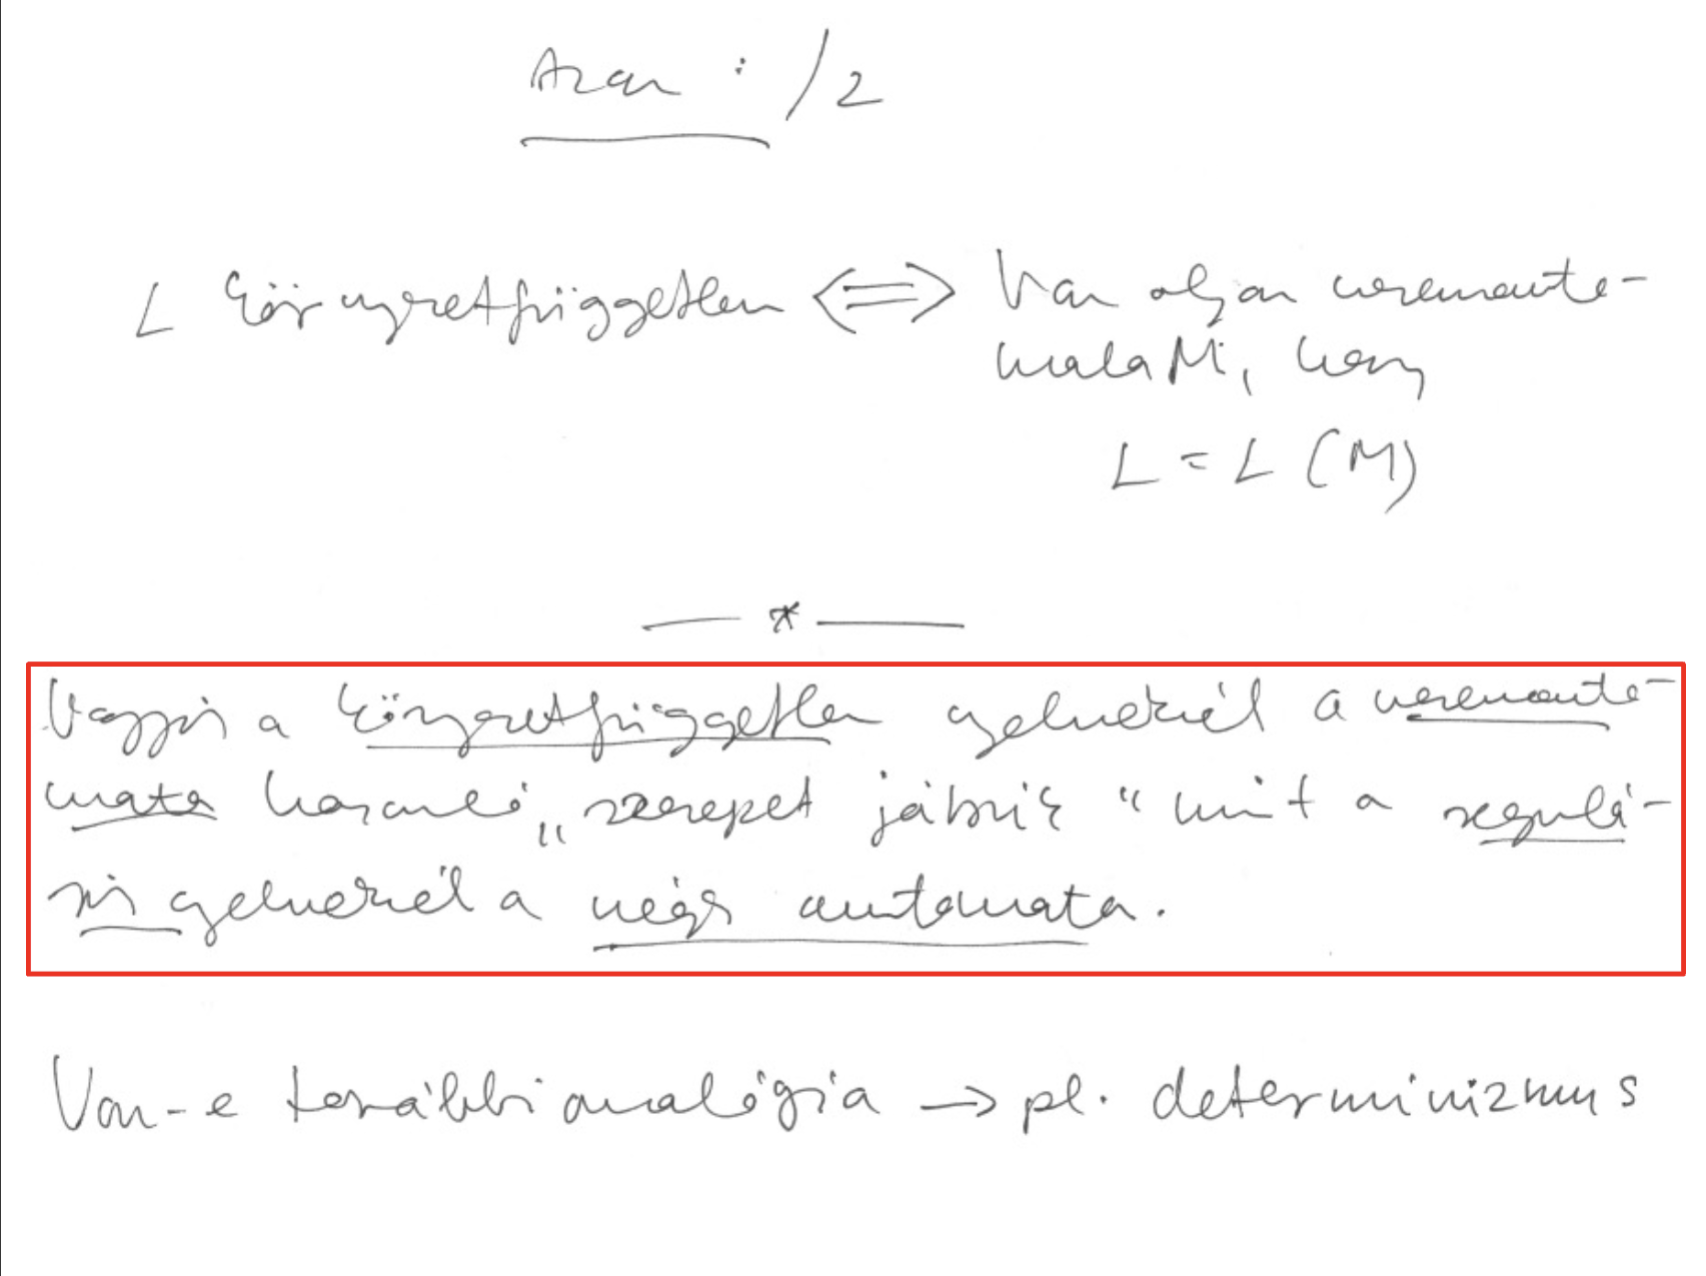 Azaz : /2
L környezetfüggetlen <=> Van olyan veremauto-
mata M, hogy
L = L (M)
— * —
Vagyis a környezetfüggetlen nyelveknél a veremauto-
mata hasonló „szerepet játszik“ mint a regulá-
ris nyelveknél a véges automata.
Van-e további analógia → pl. determinizmus